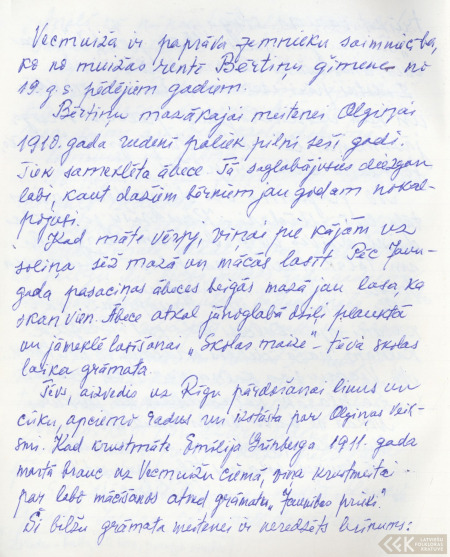 Vecmuiža ir paprāva zemnieku saimniecība,
ko no muižas rentē Bērtiņu ģimenes no
19. g. s. pēdējiem gadiem.
Bērtiņu mazākajai meitenei Olgiņai
1910. gada rudenī paliek pilni seši gadi.
Tiek sameklēta ābece. Tā saglabājusies diezgan
labi, kaut dažiem bērniem jau godam nokal-
pojusi.
Kad māte vērpj, viņai pie kājām uz
soliņa sēž mazā un mācās lasīt. Pēc Jaun-
gada pasaciņas ābeces beigās mazā jau lasa, ka
skan vien. Ābece atkal jānoglabā dziļi plauktā
un jāmeklē lasīšanai „Skolas maize" – tēva skolas
laika grāmata.
Tēvs, aizvedis uz Rīgu pārdošanai linus un
cūku, apciemo radus un izstāsta par Olgiņas veik-
smi. Kad krustmāte Emīlija Grīnberga 1911. gada
martā brauc uz Vecmuižu ciemā, viņa krustmeitai
par labo mācīšanos atved grāmatu „Jaunības prieki".
Šī bilžu grāmata meitenei ir neredzēts brīnums:
LATVIEŠU
FOLKLORAS
KRĀTUVE